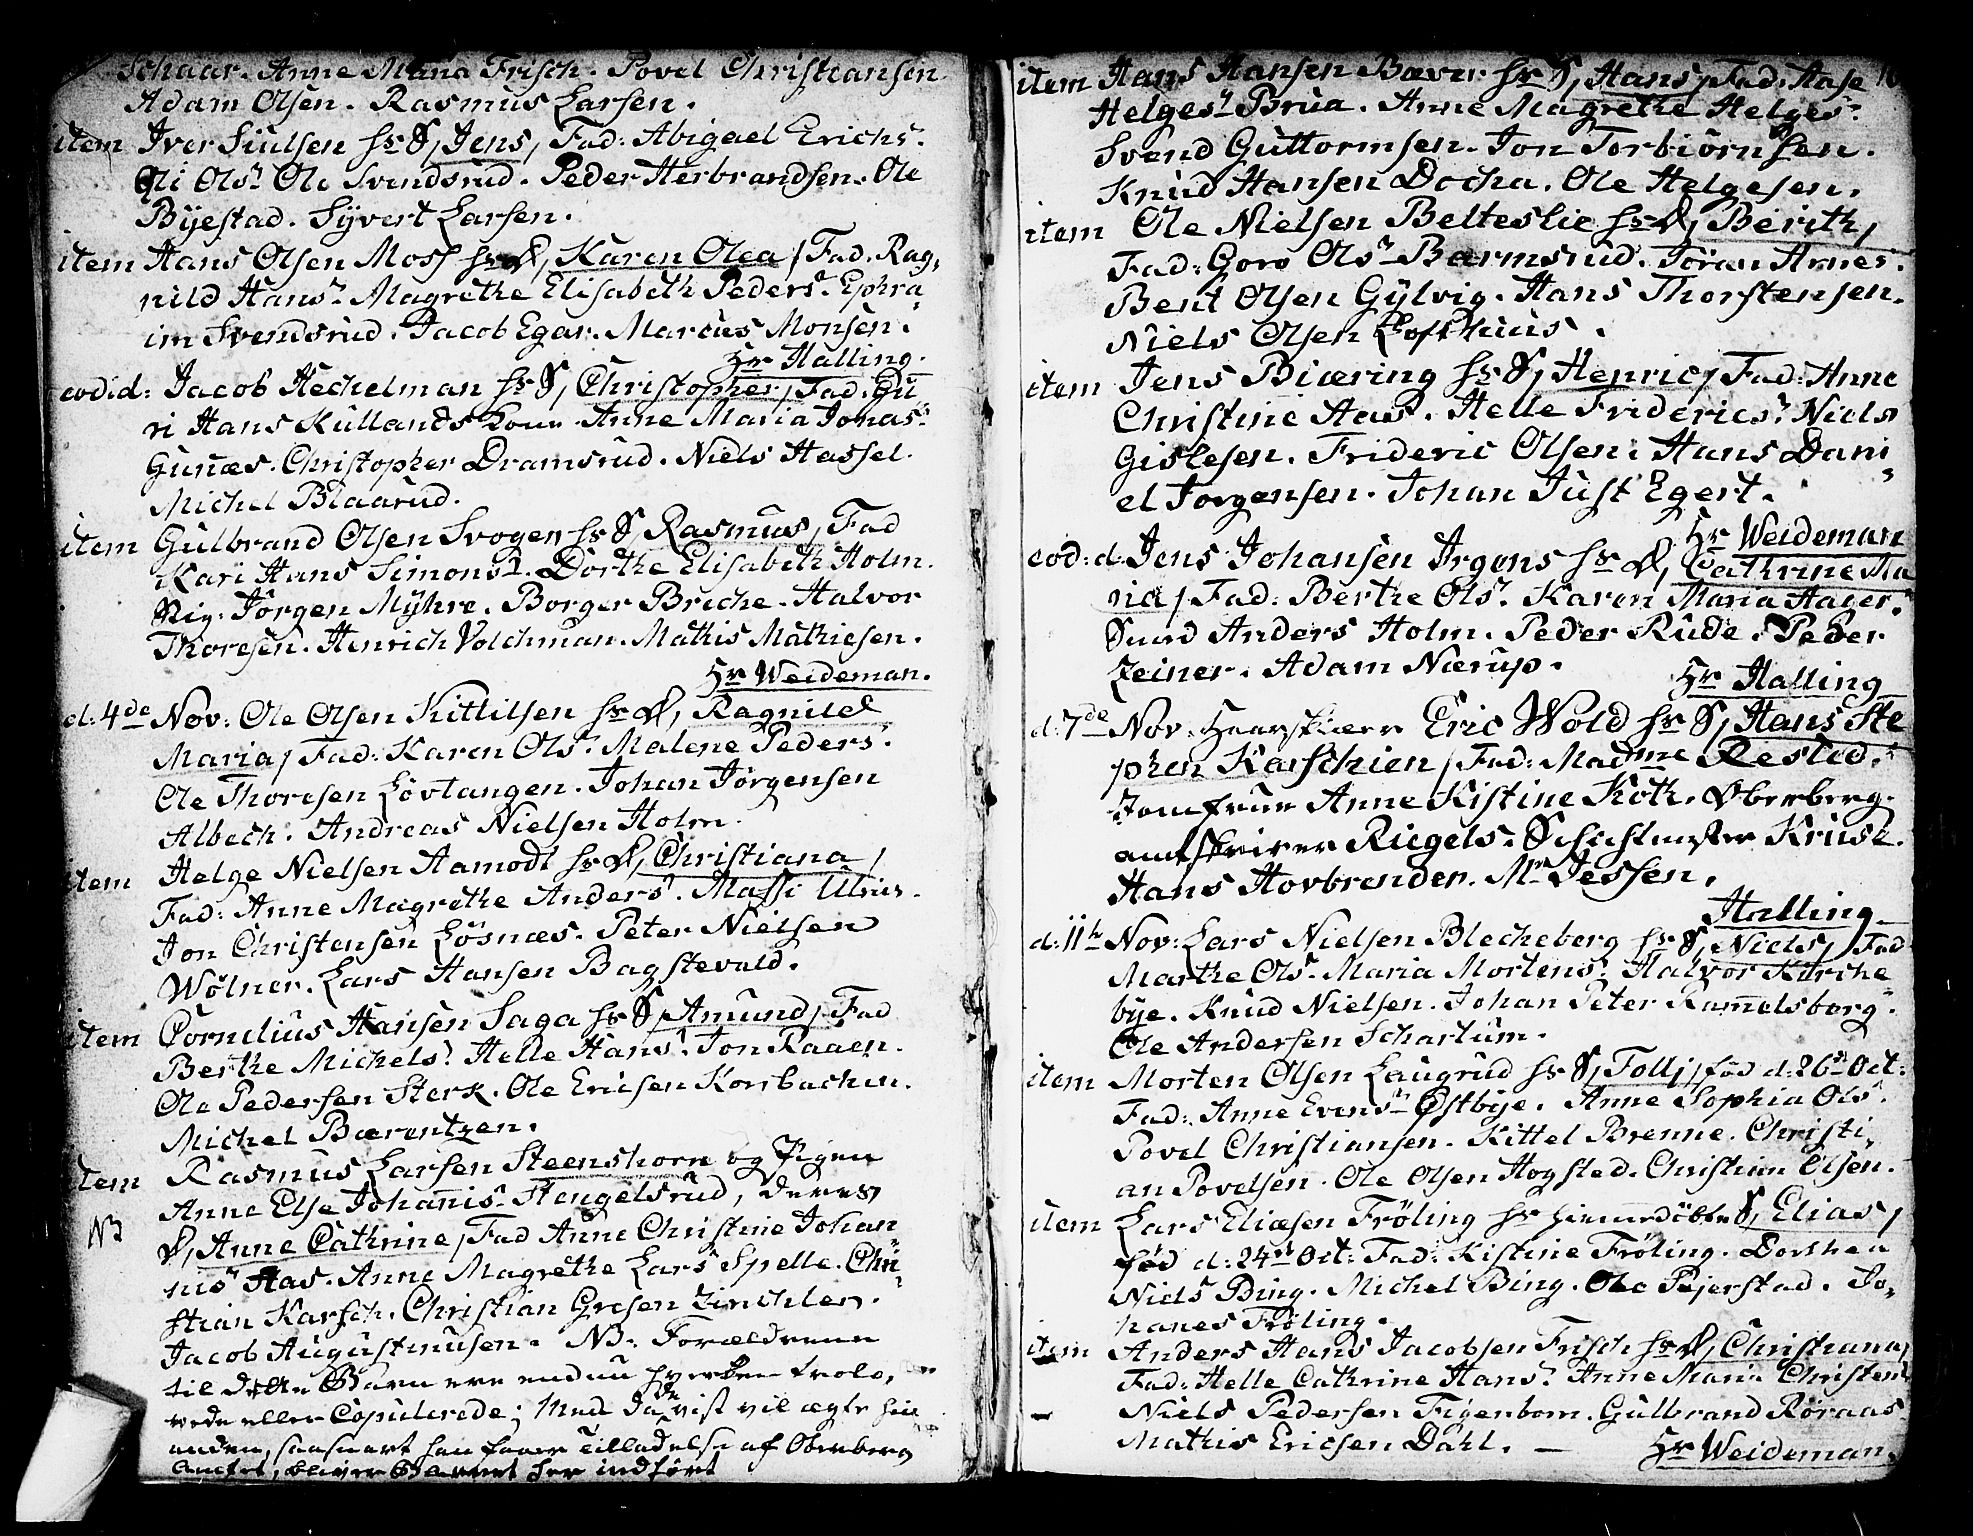 Schaar. Anne Maria Frisch. Povel Christiansen
Adam Olsen. Rasmus Larsen.
item Iver Siulsen hs S, Jens, Fad: Abigael Erichs:
Oli Ols: Ole Svendsrud. Peder Herbrandsen. Ole
Byestad. Syvert Larsen.
item Hans Olsen Moss hs D, Karen Olea / Fad. Rag,
nild Hans: Magrethe Elisabeth Peders. Ephra,
im Svendsrud. Jacob Egar. Marcus Monsen.
Hr Halling.
eod: d: Jacob Hechelman hs S, Christopher, Fad: Gu
ri Hans Kullands Anne Maria Jonas:
Gunæs. Christopher Dramsrud. Niels Hassel.
Michel Blaarud.
item Gulbrand Olsen Svogen hs S, Rasmus, Fad
Kari Hans Simons: Dorthe Elisabeth Holm.
Sig: Jørgen Myhre. Borger Briche. Halvor
Thoresen. Henrich Volchman. Mathis Mathiesen.
Hr Weideman.
d: 4de Nov: Ole Olsen Kittilsen hs D, Ragnild
Maria / Fad: Karen Ols: Malene Peders:
Ole Thoresen Løvtangen. Johan Jørgensen
Albech. Andreas Nielsen Holm.
item Helge Nielsen Aamodt hs D, Christiana /
Fad: Anne Magrethe Anders: Massi Ulrics.
Jon Christensen Løsnæs. Peter Nielsen
Wølner. Lars Hansen Bagstevald.
item Cornelius Hansen Saga hs S, Amund / Fad
Berthe Michels: Helle Hans: Jon Raaen.
Ole Pedersen Sterk. Ole Ericsen Korsbachen.
Michel Bærentzen.
item Rasmus Larsen Steenshorn og Pigen
Anne Else Johannis: Stengelsrud, deres
NB D, Anne Cathrine / Fad Anne Christine Johan,
nis: Aas. Anne Magrethe Lars: Spelle. Chri,
stian Karsch. Christian Gresen Zinchler.
Jacob Augustinusen. NB: Forældrene
til dette Barn ere endnu hverken trolo,
vede eller Copulerede; Men da de vist vil ægte hin
anden, saasnart han faaer Tilladelse af Oberberg
Amtet, bliver Barnet her indført
item Hans Hansen Bæver hs S, Hans / Fad: Aase
Helges: Brua. Anne Magrethe Helges:
Svend Guttormsen. Jon Torbiørnsen.
Knud Hansen Docha. Ole Helgesen.
item Ole Nielsen Belteslie hs D, Berith /
Fad: Goro Ols: Bærmsrud. Jøran Arnes:
Bent Olsen Gylvig. Hans Thorstensen.
Niels Olsen Lofthuus.
item Jens Biæring hs S, Henric / Fad: Anne
Christine Aas. Helle Friderics: Niels
Gislesen. Frideric Olsen. Hans Dani
el Jorgensen. Johan Just Egert.
Hr Weideman
eod: d: Jens Johansen Irgens hs D, Cathrine Ma
ria / Fad: Berthe Ols: Karen Maria Hager.
Anders Holm. Peder Rude. Peder
Zeiner. Adam Nærup.
Hr Halling
d: 7de Nov. Eric Wold hs S, Hans Ste
phen Karschien / Fad: Madme Resled.
Jomfrue Anne Kistine Koth. Oberberg
amtskriver Riegels. Schichtmester Kruse.
Hans Hovbrender. Mr Jessen.
Halling
d: 11te Nov: Lars Nielsen Blecheberg hs S, Niels / Fad
Marthe Ols: Maria Mortens: Halvor Kirche
bye. Knud Nielsen. Johan Peter Rammelsberg.
Ole Andersen Scharlum.
item Morten Olsen Laugrud hs S, Tolli / fød d: 26de Oct:
Fad: Anne Evens: Østbye. Anne Sophia Ols:
Povel Christiansen. Kittel Brenne. Christi,
an Povelsen. Ole Olsen Hogsted. Christian Olsen.
item Lars Eliæsen Frøling hs hiemmedøbte S, Elias /
fød d: 24de Oct: Fad: Kistine Frøling. Dorthea
Niels Bing. Michel Bing. Ole Pejerstad. Jo,
hanes Frøling.
item Anders Hans Jacobsen Frisch hs D, Christiana /
Fad: Helle Cathrine Hans: Anne Maria Christens:
Niels Pedersen Figenbom. Gulbrand Røraas.
Mathis Ericsen Dahl. —
Hr Weideman.